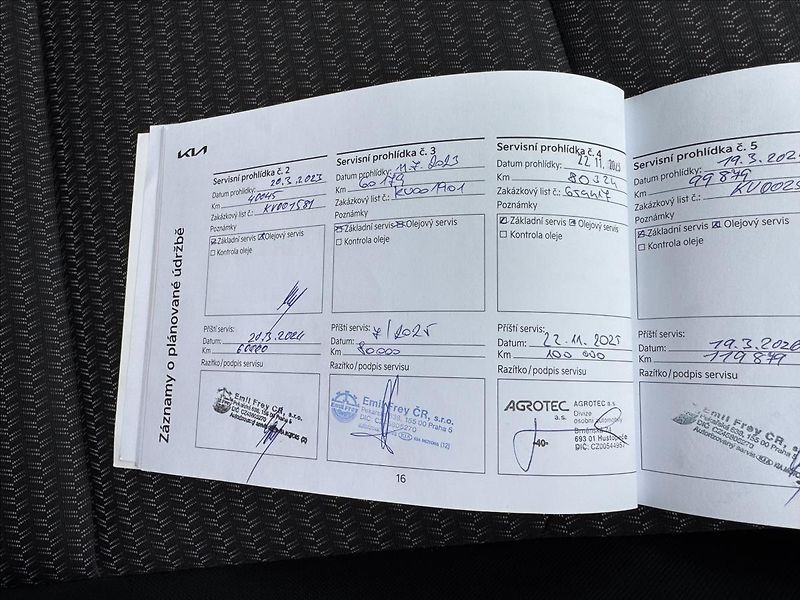 KIA
Záznamy o plánované údržbě
Servisní prohlídka č. 2
Datum prohlídky: 20.3.2023
Km 40045
Zakázkový list č.: KV001581
Poznámky
Základní servis Olejový servis
Kontrola oleje
Příští servis:
Datum: 20.3.2024
Km 60000
Razítko/podpis servisu
Emil Frey ČR, s.r.o.
Pekařská 638, 155 00 Praha 5
DIČ: CZ49805270
Servisní prohlídka č. 3
Datum prohlídky: 11.7.2023
Km 60179
Zakázkový list č.: KV001901
Poznámky
Základní servis Olejový servis
Kontrola oleje
Příští servis:
Datum: 7/2025
Km 80000
Razítko/podpis servisu
Emil Frey ČR, s.r.o.
Pekařská 638, 155 00 Praha 5
KIA MOTORS (12)
16
Servisní prohlídka č. 4
Datum prohlídky: 22.11.
Km
Zakázkový list č.:
Poznámky
Základní servis Olejový servis
Kontrola oleje
Příští servis:
Datum: 22.11.2025
Km 100 000
Razítko/podpis servisu
AGROTEC a.s.
AGROTEC a.s.
Divize
osobní automobily
Brněnská 74
693 01 Hustopeče
DIČ: CZ00544957
-40-
Servisní prohlídka č. 5
Datum prohlídky: 19.3.202
Km 99879
Zakázkový list č.: KV0025
Poznámky
Základní servis Olejový servis
Kontrola oleje
Příští servis:
Datum: 19.3.2026
Km 119879
Razítko/podpis servisu
Emil Frey ČR, s.r.o.
Pekařská 638, 155 00 Praha 5
DIČ: CZ49805270
Autorizovaný servis KIA